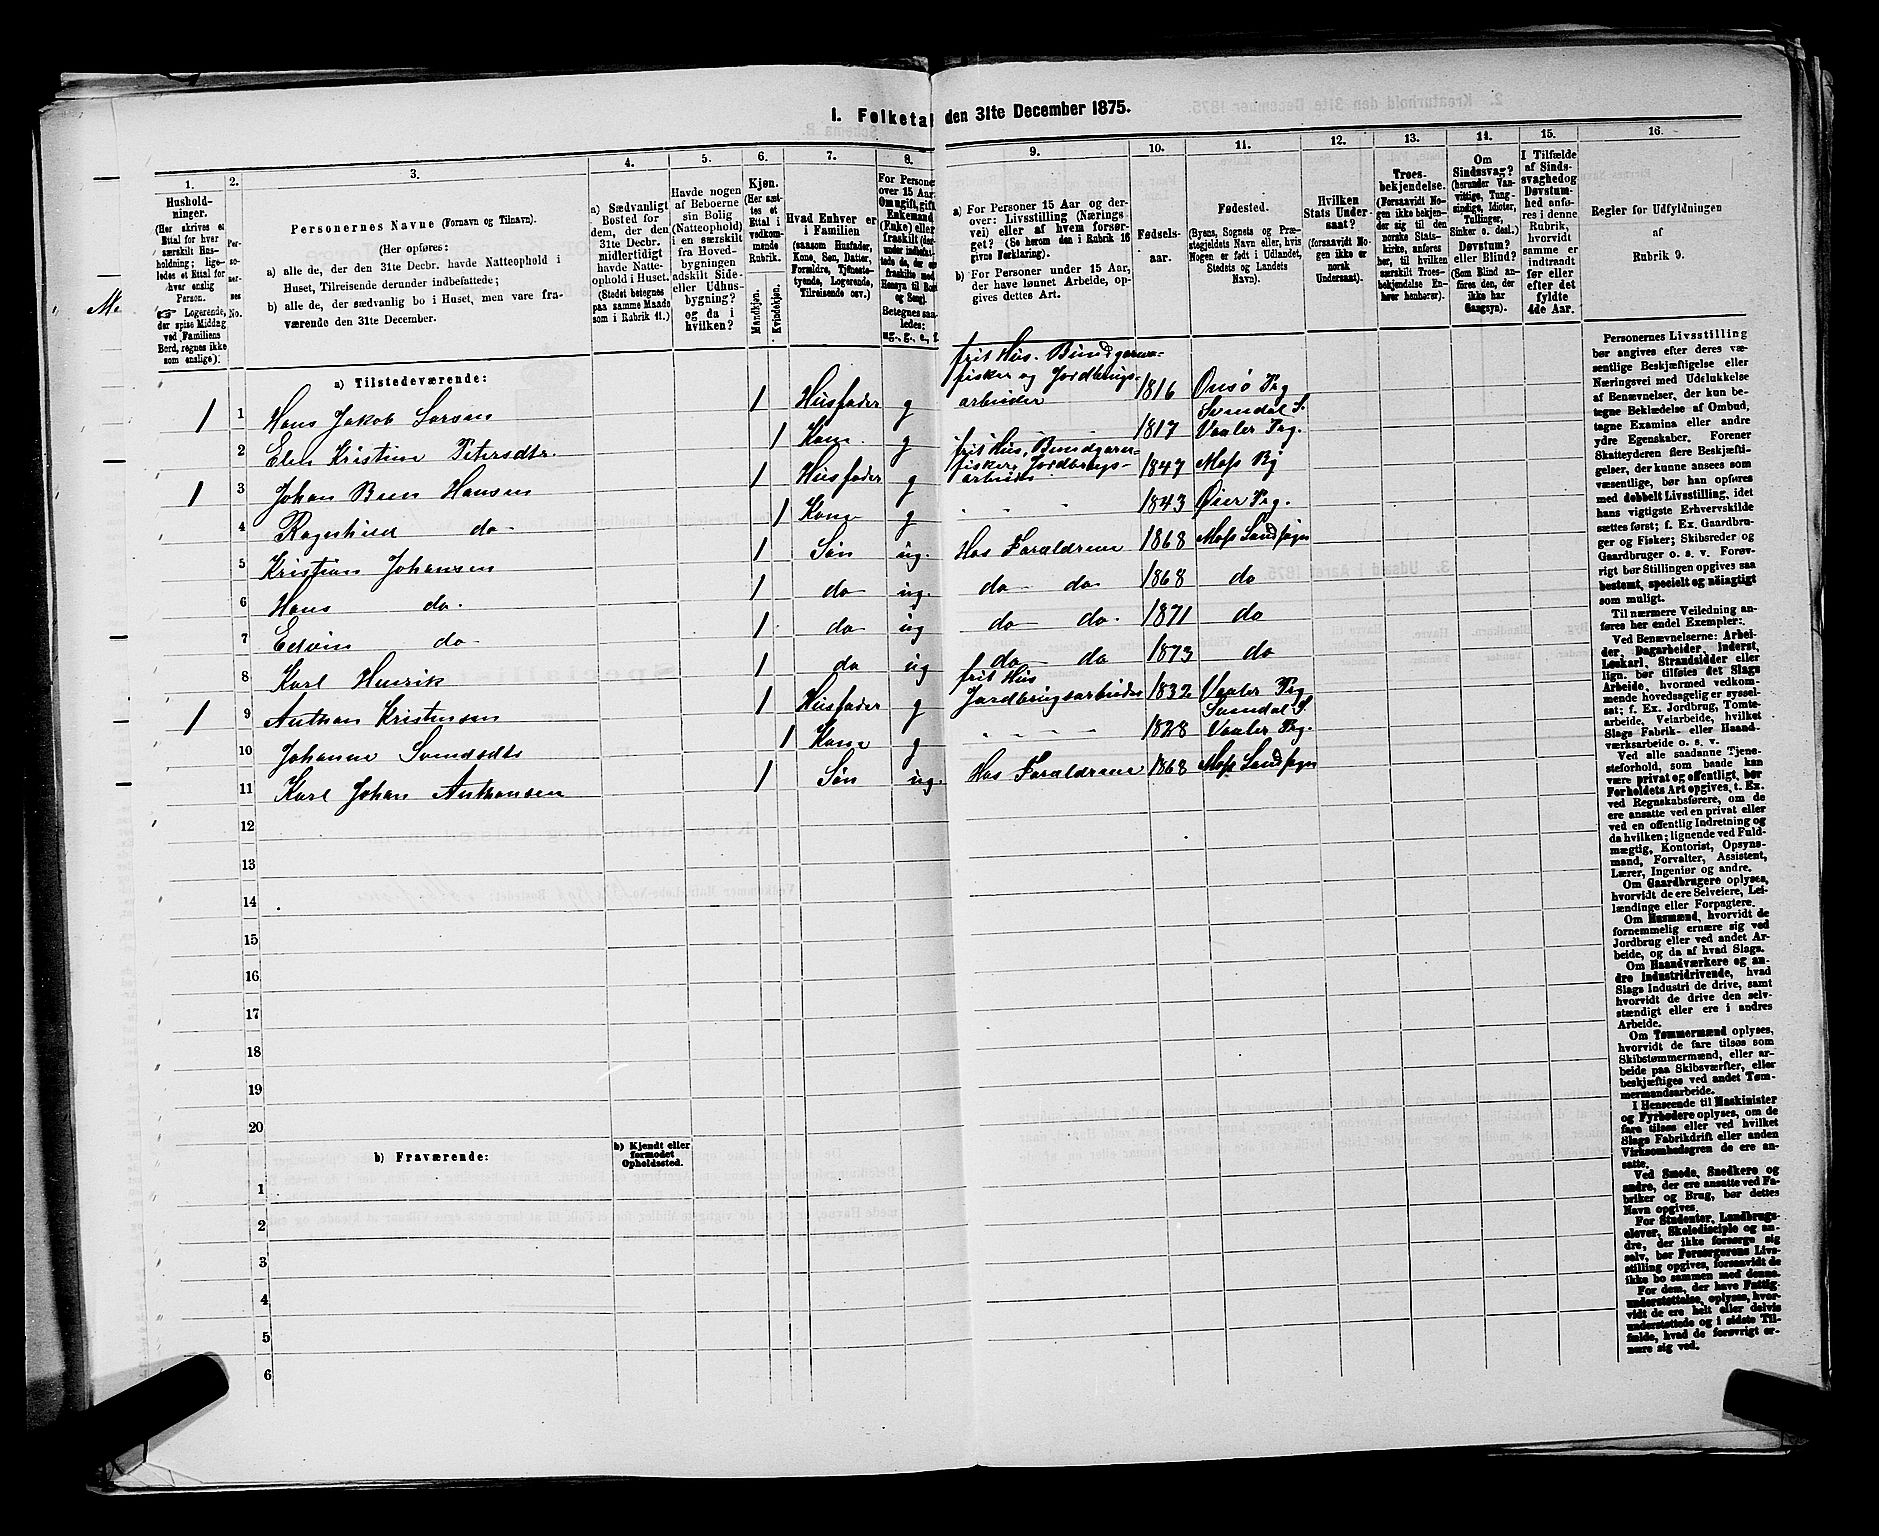 1. Folketal den 31te December 1875.
1. 2. 3. 4. 5. 6. 7. 8. 9. 10. 11. 12. 13. 14. 15. 16.
Husholdninger. (Her skrives et Ettal for hver særskilt Husholdning; ligeledes et Ettal for hver enslig Person. Logerende, der spise Middag ved Familiens Bord, regnes ikke som enslige).
Personernes No.
Personernes Navne (Fornavn og Tilnavn).
(Her opføres:
a) alle de, der den 31te Decbr. havde Natteophold i Huset, Tilreisende derunder indbefattede;
b) alle de, der sædvanlig bo i Huset, men vare fraværende den 31te December.
a) Sædvanligt Bosted for dem, der den 31te Decbr. midlertidigt havde Natteophold i Huset. (Stedet betegnes paa samme Maade som i Rubrik 11.)
Havde nogen af Beboerne sin Bolig (Natteophold) i en særskilt fra Hovedbygningen adskilt Side- eller Udhusbygning? og da i hvilken?
Kjøn. (Her sættes et Ettal i vedkommende Rubrik.
Mandkjøn. Kvindekjøn.
Hvad Enhver er i Familien (saasom Husfader, Kone, Søn, Datter, Forældre, Tjenestetyende, Logerende, Tilreisende osv.)
For Personer over 15 Aar: Om ugift, gift, Enkemand (Enke) eller fraskilt
Betegnes saaledes: ug., g., e., f.
a) For Personer 15 Aar og derover: Livsstilling (Næringsvei) eller af hvem forsørget? (Se herom den i Rubrik 16 givne Forklaring).
b) For Personer under 15 Aar, der have lønnet Arbeide, opgives dettes Art.
Fødselsaar.
Fødested.
(Byens, Sognets og Præstegjeldets Navn eller, hvis Nogen er født i Udlandet, Stedets og Landets Navn).
Hvilken Stats Undersaat? (forsaavidt Nogen ikke er norsk Undersaat).
Troesbekjendelse. (Forsaavidt Nogen ikke bekjender sig til den norske Statskirke, anføres her, til hvilken særskilt Troesbekjendelse Enhver henhører).
Om Sindssvag? (herunder Vanvittige, Tungsindige, Idioter, Tullinger, Sinker o. desl.) Døvstum? eller Blind? (Som Blind anføres den, der ikke har Gangsyn).
I Tilfælde af Sindssvaghed og Døvstumhed anføres i denne Rubrik, hvorvidt samme er indtraadt før eller efter det fyldte 4de Aar.
Regler for Udfyldningen
af
Rubrik 9.
a) Tilstedeværende:
1 1 Hans Jakob Larsen 1 Husfader g frit Hus. Bundgarnsfisker og Jordbrugsarbeider 1816 Onsø Prg
2 Elen Kristine Petersdtr. 1 Kone g 1817 Svindal S. Vaaler Prg.
1 3 Johan Hansen 1 Husfader g frit Hus, Bundgarnsfisker, Jordbrugsarbeide 1847 Moss By
4 Ragnhild do 1 Kone g 1843 Øier Prg.
5 Kristian Johansen 1 Søn ug. Hos Foraldrene 1868 Moss Landsogn
6 Hans do. 1 do ug. do do 1868 do
7 Edvin do 1 do ug do do. 1871 do
8 Karl Henrik 1 do ug do do 1873 do
1 9 Anthon Kristensen 1 Husfader g frit Hus Jordbrugsarbeider 1832 Vaaler Prg
10 Johanne Svendsdtr 1 Kone g 1828 Svindal S. Vaaler Prg.
11 Karl Johan Anthonsen 1 Søn ug. Hos Foraldrene 1868 Moss Landsogn
12
13
14
15
16
17
18
19
20
b) Fraværende:
b) Kjendt eller formodet Opholdssted.
1
2
3
4
5
6
Personernes Livsstilling
bør angives efter deres væ-
sentlige Beskjæftigelse eller
Næringsvei med Udelukkelse
af Benævnelser, der kun be-
tegne Beklædelse af Ombud,
tagne Examina eller andre
ydre Egenskaber. Forener
Skatteyderen flere Beskjæfti-
gelser, der kunne ansees som
væsentlige, bør han opføres
med dobbelt Livsstilling, idet
hans vigtigste Erhvervskilde
sættes først; f. Ex. Gaardbru-
ger og Fisker; Skibsreder og
Gaardbruger o. s. v. Forøv-
rigt bør Stillingen opgives saa
bestemt, specielt og nöiagtigt
som muligt.
Til nærmere Veiledning an-
føres her endel Exempler:
Ved Benævnelserne: Arbei-
der, Dagarbeider, Inderst,
Løskarl, Strandsidder eller
lign. bør tilføies det Slags
Arbeide, hvormed vedkom-
mende hovedsagelig er syssel-
sat; f. Ex. Jordbrug, Tomte-
arbeide, Veiarbeide, hvilket
Slags Fabrik- eller Haand-
værksarbeide o. s. v.
Ved alle saadanne Tjene-
steforhold, som baade kan
være privat og offentligt, bør
Forholdets Art opgives, t. Ex.
ved Regnskabsførere, om de
ere ansatte ved en privat eller
ved en offentlig Indretning og
da hvilken; lignende ved Fuld-
mægtig, Kontorist, Opsyns-
mand, Forvalter, Assistent,
Lærer, Ingeniør og andre.
Om Gaardbrugere oplyses,
hvorvidt de ere Selveiere, Lei-
lændinge eller Forpagtere.
Om Husmænd, hvorvidt de
fornemmelig ernære sig ved
Jordbrug eller ved andet Ar-
beide, og da af hvad Slags.
Om Haandværkere og an-
dre Industridrivende, hvad
Slags Industri de drive, samt
hvorvidt de drive den selv-
stændigt eller ere i andres
Arbeide.
Om Tømmermænd oplyses,
hvorvidt de fare tilsøs som
Skibstømmermænd, eller ar-
beide paa Skibsværfter, eller
beskjæftiges ved andet Tøm-
mermandsarbeide.
I Henseende til Maskinister
og Fyrbødere oplyses, om de
fare tilsøs eller ved hvilket
Slags Fabrikdrift eller anden
Virksomhedsgren de ere an-
satte.
Ved Smede, Snedkere og
andre, der ere ansatte ved Fa-
briker og Brug, bør dettes
Navn opgives.
For Studenter, Landbrugs-
elever, Skoledisciple og an-
dre, der ikke forsørge sig
selv, bør Forsørgerens Livs-
stilling opgives, forsaavidt de
ikke bo sammen med denne.
For dem, der have Fattig-
understøttelse, oplyses, hvor-
vidt de ere helt eller delvis
understøttede og i sidste Til-
fælde, hvad de forøvrigt er-
nære sig ved.